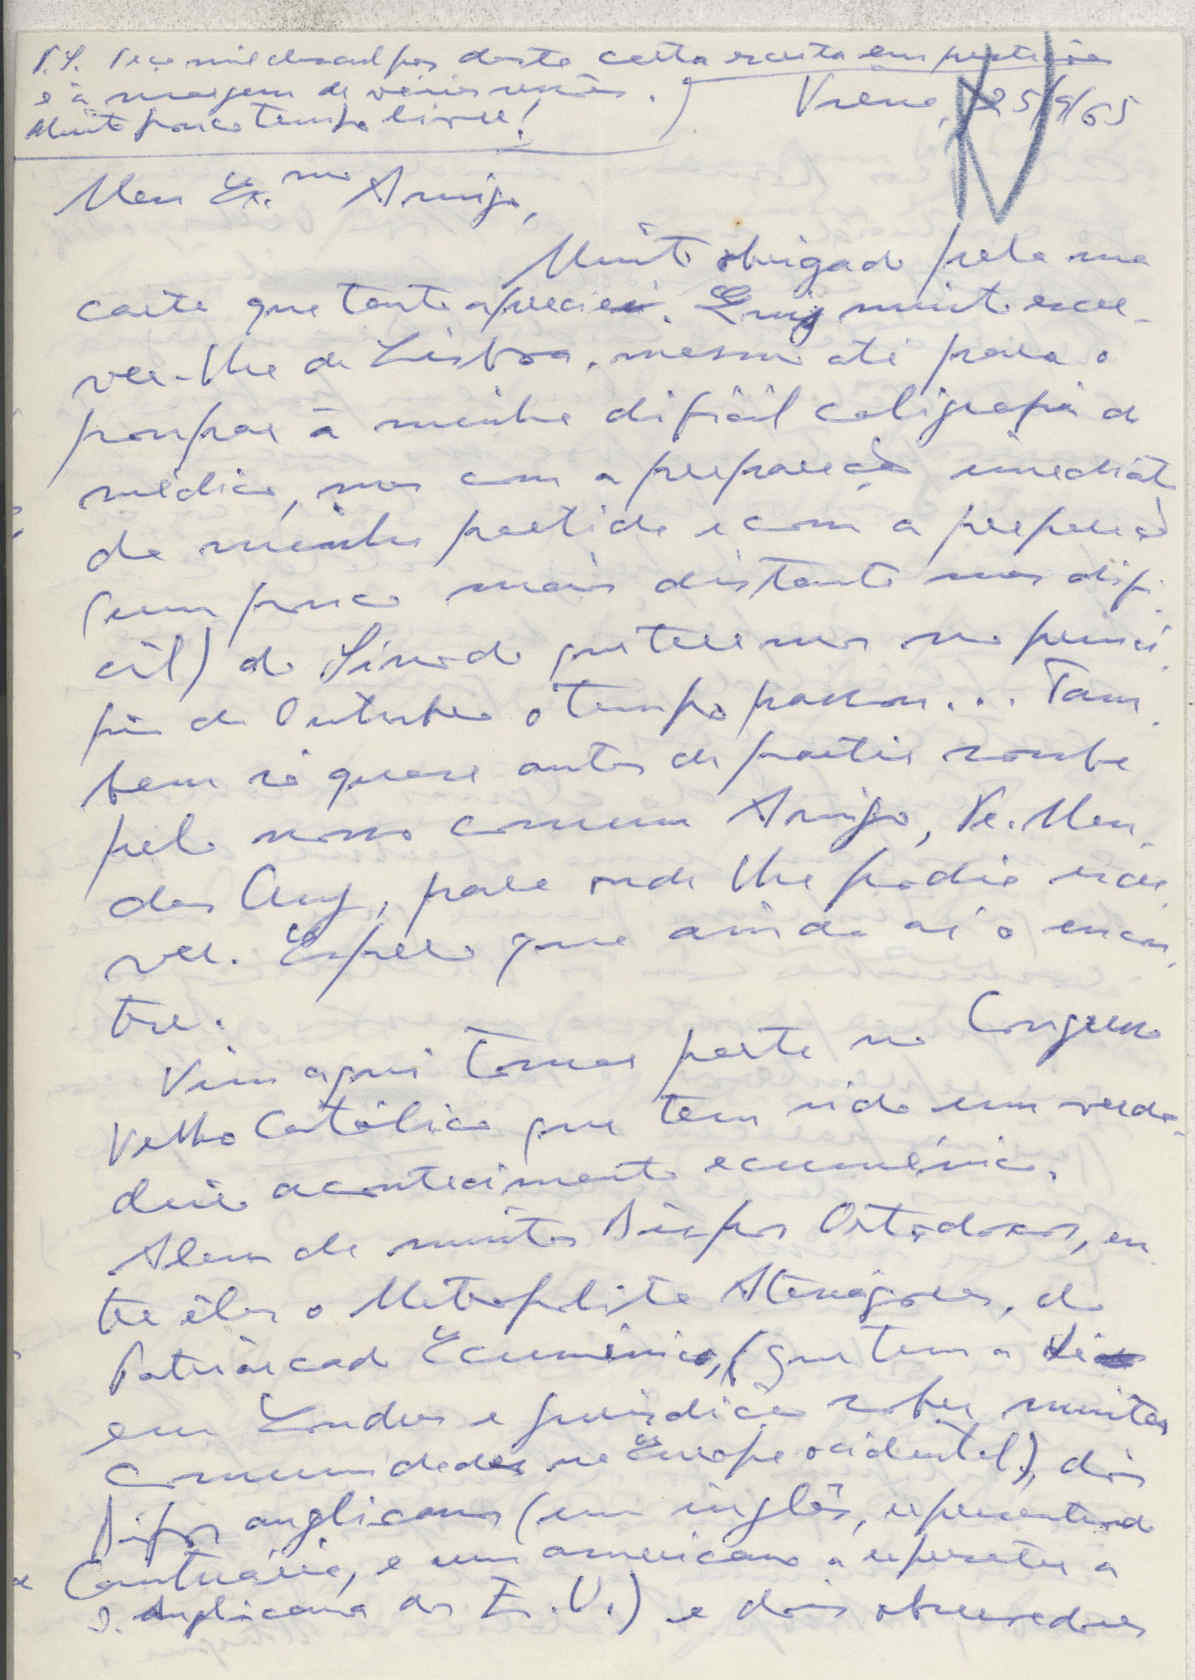 P.S. Peço mil desculpas desta carta escrita em
e à margem de várias
Muito pouco tempo livre!
Viena, 25/9/65
Meu Ex.mo Amigo,
Muito obrigado pela sua
carta que tanto apreciei. Quis muito escre-
ver-lhe de Lisboa, mesmo até para o
poupar à minha difícil caligrafia de
médico, mas com a preparação imediata
da minha partida e com a preparação
(um pouco mais distante mas difí-
cil) do Sínodo que teremos no princí-
pio de Outubro o tempo passou... Tam-
bem só quase antes de partir soube
pelo nosso comum Amigo, Pe. Men-
des, para onde lhe podia escre-
ver. Espero que ainda aí o encon-
tre.
Vim aqui tomar parte no Congresso
Velho Católico que tem sido um verda-
deiro acontecimento ecuménico.
Alem de muitos Bispos Ortodoxos, en-
tre êles o Metropolita Atenágoras, do
Patriarcado Ecuménico, (que tem a
em Londres e jurisdição sobre muitas
comunidades na Europa ocidental), dois
Bispos anglicanos (um inglês, representando
Cantuária, e um americano a representar a
I. Anglicana dos E.U.) e dois observadores